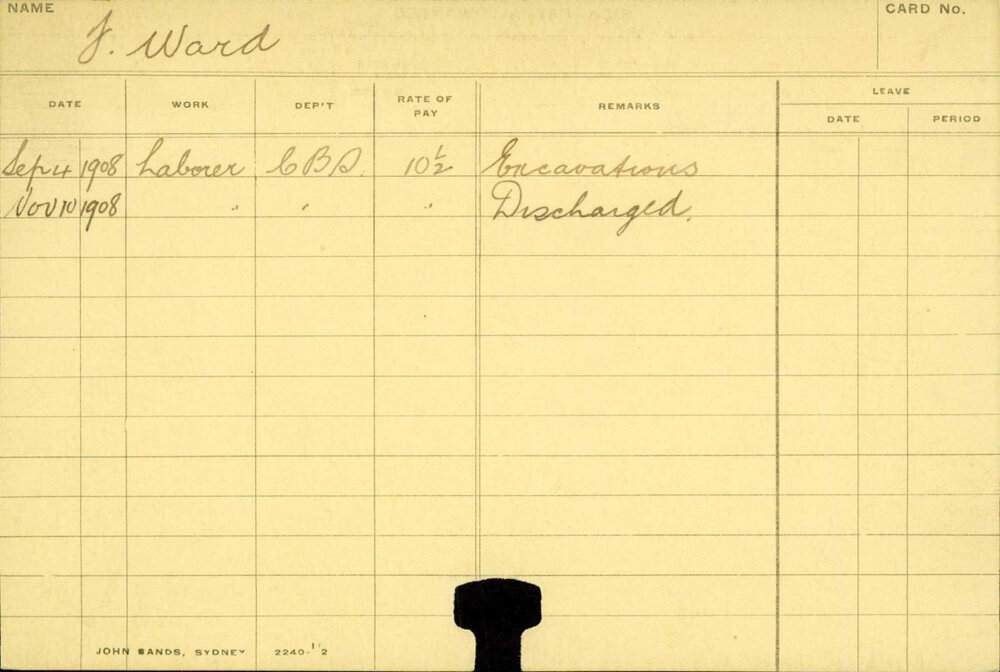 NAME
CARD No.
J. Ward
DATE WORK DEP'T RATE OF PAY REMARKS LEAVE
DATE PERIOD
Sep 4 1908 Laborer C B S. 10½ Excavations
Nov 10 1908 " " " Discharged.
JOHN SANDS, SYDNEY 2240-1/2